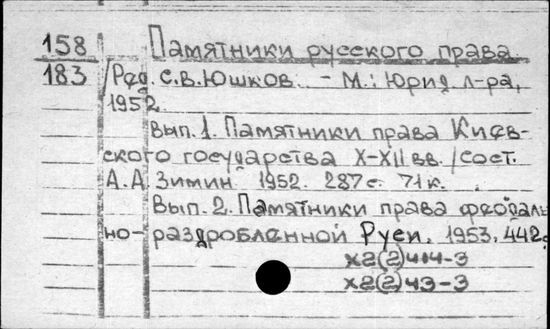 158 Памятники русского права.
183 /Ред. С.В.Юшков. - М.: Юрид. л-ра,
1952.
Вып. 1. Памятники права Киев-
ского государства X-XII вв. /сост.
А.А. Зимин 1952. 287 с. 71 к.
Вып. 2. Памятники права феодаль
но-раздробленной Руси. 1953. 442с
Х2(2)414-3
Х2(2)43-3